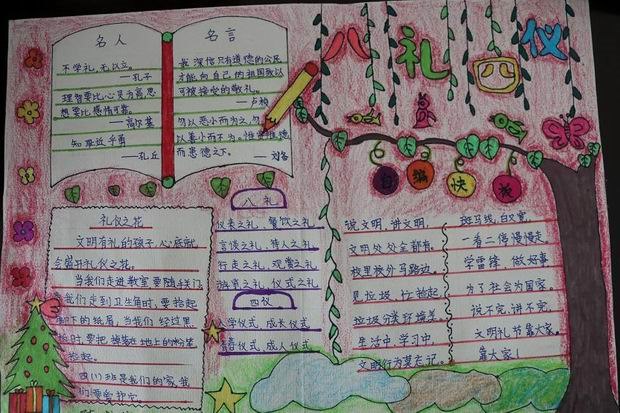 八礼四仪
名人
名言
不学礼,无以立。
——孔子
理智要比心灵为高,思
想要比感情可靠。
——高尔基
知耻近乎勇
——孔丘
我深信只有道德的公民
才能向自己的祖国致以
可被接受的敬礼。
——卢梭
勿以恶小而为之,勿
以善小而不为。惟贤惟德
——刘备
礼仪之花
文明有礼的孩子,心底就
会盛开礼仪之花。
当我们走进教室要随手门
我们走到卫生角时,要拾起
脚下的纸屑,当我们经过黑
起。
四(1)班是我们的家,我
们要爱护它。
八礼
仪表之礼,餐饮之礼
言谈之礼,待人之礼
行走之礼,观赏之礼
游览之礼,仪式之礼
四仪
入学仪式,成长仪式
青春仪式,成人仪式
说文明,讲文明,
文明处处全都有。
校里校外马路边,
见垃圾,忙拾起
垃圾分类环境美
生活中,学习中,
文明行为莫忘记。
斑马线,白又宽,
一看二停慢慢走
学雷锋 做好事
为了社会为国家。
说不完,讲不完,
文明礼节靠大家。
靠大家!